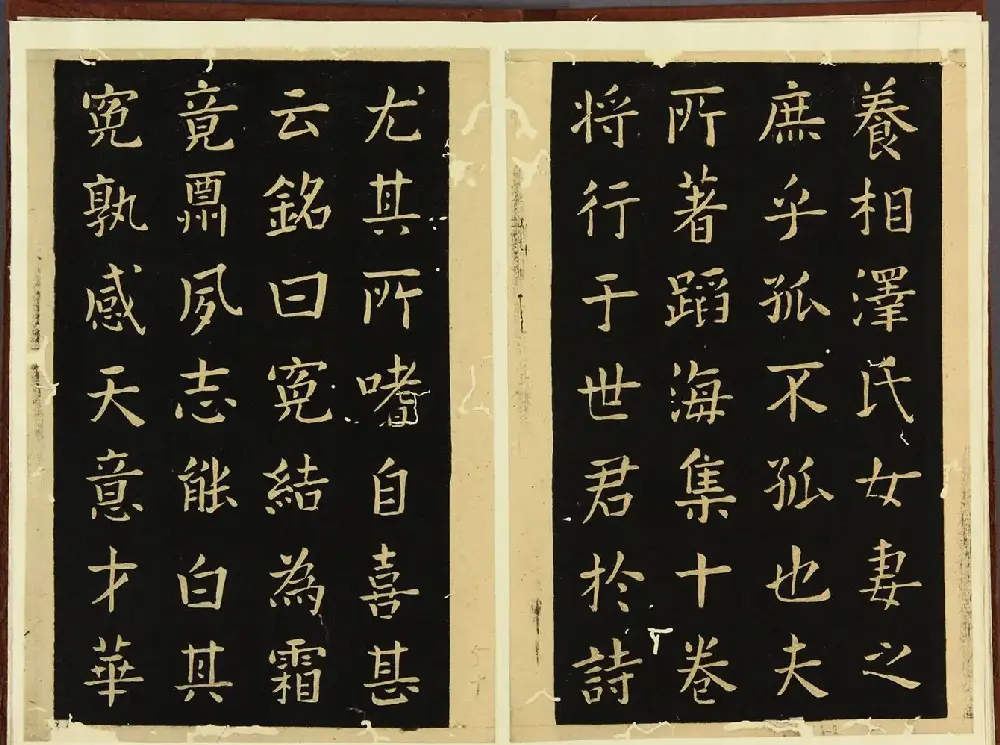 養相澤氏女妻之
庶乎孤不孤也夫
所著蹈海集十卷
将行于世君於詩
尤其所嗜自喜甚
云銘曰寃結為霜
竟夙志能白其
寃孰感天意才華